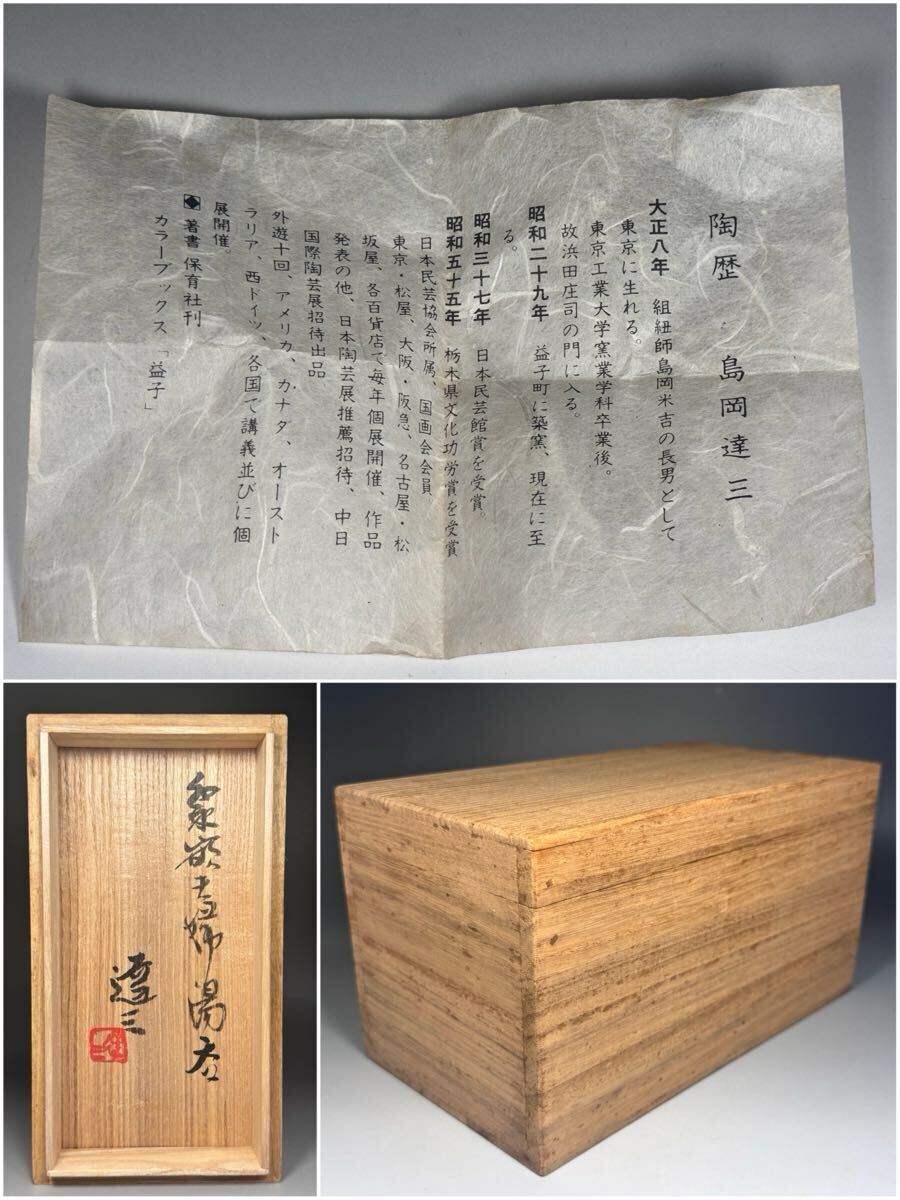 陶歴 島岡達三
大正八年 組紐師島岡米吉の長男として
東京に生れる。
東京工業大学窯業学科卒業後。
故浜田庄司の門に入る。
昭和二十九年 益子町に築窯、現在に至
る。
昭和三十七年 日本民芸館賞を受賞。
昭和五十五年 栃木県文化功労賞を受賞
日本民芸協会所属、国画会会員
東京・松屋、大阪・阪急、名古屋・松
坂屋、各百貨店で毎年個展開催、作品
発表の他、日本陶芸展推薦招待、中日
国際陶芸展招待出品
外遊十回、アメリカ、カナダ、オースト
ラリア、西ドイツ、各国で講義並びに個
展開催
著書 保育社刊
カラーブックス「益子」
象嵌
湯呑
達三